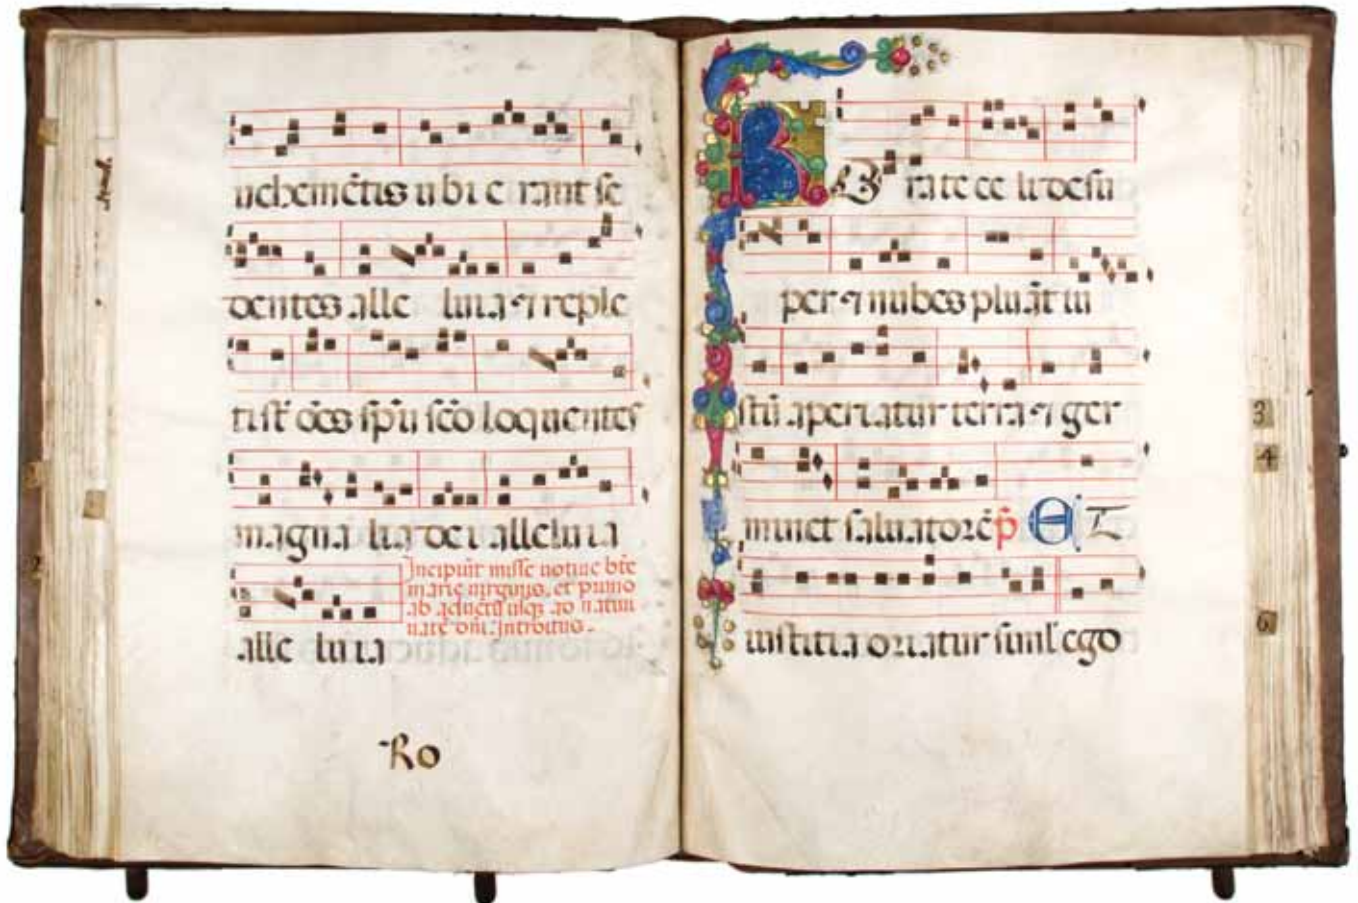 uehemētis ubi erant se
dentes alle luia ⁊ reple
ti sūt oēs spū scō loquentes
magna lia dei alleluia
Incipiūt misse uotiue bte
marie uirginis. et primo
ab aduētu usqȝ ad natiui
tatē dn̄i. Introitus.
alle luia
Ro
R O rate celi desu
per ⁊ nubes pluāt iu
stū aperiatur terra ⁊ ger
minet saluatorē p̄ ET
iustitia oriatur simul ego
3
4
6